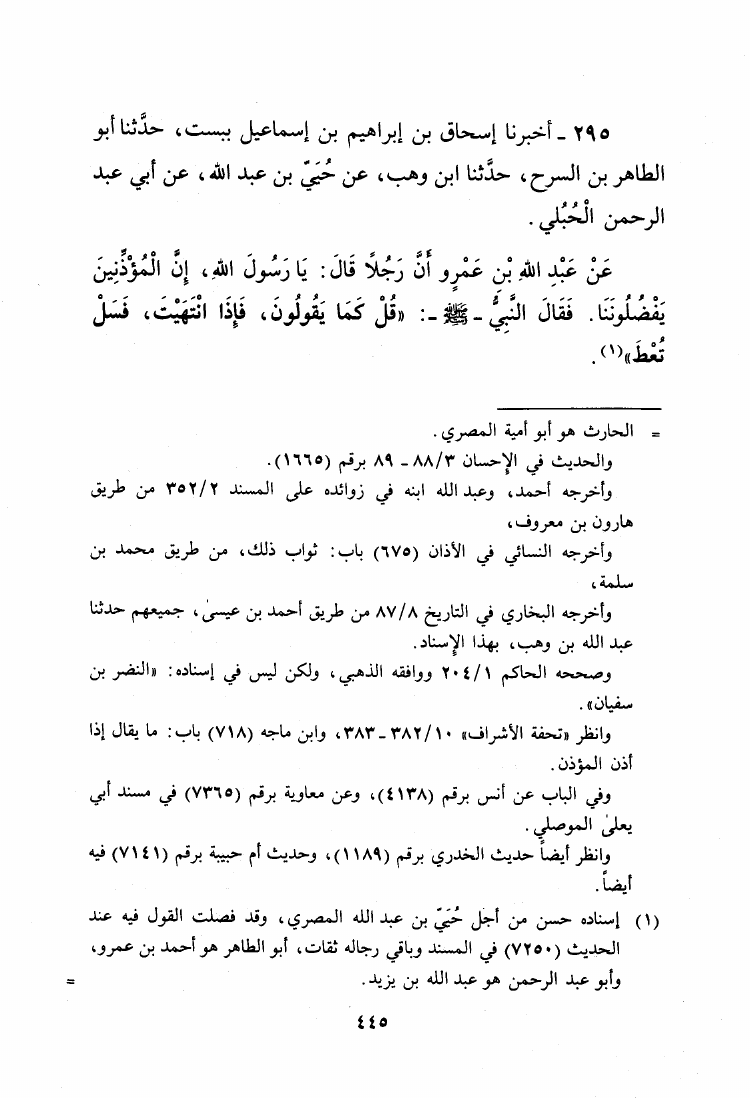 ٢٩٥ ـ أخبرنا إسحاق بن إبراهيم بن إسماعيل ببست، حدَّثنا أبو
الطاهر بن السرح، حدَّثنا ابن وهب، عن حُيَيّ بن عبد الله، عن أبي عبد
الرحمن الْحُبُلي.
عَنْ عَبْدِ اللهِ بْنِ عَمْرٍو أَنَّ رَجُلًا قَالَ: يَا رَسُولَ اللهِ، إِنَّ الْمُؤَذِّنِينَ
يَفْضُلُونَنَا. فَقَالَ النَّبِيُّ ـ ﷺ ـ: «قُلْ كَمَا يَقُولُونَ، فَإِذَا انْتَهَيْتَ، فَسَلْ
تُعْطَ»(١).
= الحارث هو أبو أمية المصري.
والحديث في الإحسان ٨٨/٣ ـ ٨٩ برقم (١٦٦٥).
وأخرجه أحمد، وعبد الله ابنه في زوائده على المسند ٣٥٢/٢ من طريق
هارون بن معروف،
وأخرجه النسائي في الأذان (٦٧٥) باب: ثواب ذلك، من طريق محمد بن
سلمة،
وأخرجه البخاري في التاريخ ٨٧/٨ من طريق أحمد بن عيسىٰ، جميعهم حدثنا
عبد الله بن وهب، بهذا الإسناد.
وصححه الحاكم ٢٠٤/١ ووافقه الذهبي، ولكن ليس في إسناده: «النضر بن
سفيان».
وانظر «تحفة الأشراف» ٣٨٢/١٠ ـ ٣٨٣، وابن ماجه (٧١٨) باب: ما يقال إذا
أذن المؤذن.
وفي الباب عن أنس برقم (٤١٣٨)، وعن معاوية برقم (٧٣٦٥) في مسند أبي
يعلىٰ الموصلي.
وانظر أيضاً حديث الخدري برقم (١١٨٩)، وحديث أم حبيبة برقم (٧١٤١) فيه
أيضاً.
(١) إسناده حسن من أجل حُيَيّ بن عبد الله المصري، وقد فصلت القول فيه عند
الحديث (٧٢٥٠) في المسند وباقي رجاله ثقات، أبو الطاهر هو أحمد بن عمرو،
وأبو عبد الرحمن هو عبد الله بن يزيد. =
٤٤٥